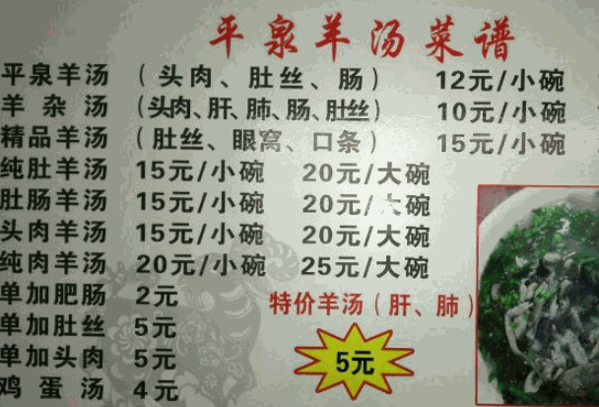 平泉羊汤菜谱
平泉羊汤 （头肉、肚丝、肠） 12元/小碗
羊杂汤 （头肉、肝、肺、肠、肚丝） 10元/小碗
精品羊汤 （肚丝、眼窝、口条） 15元/小碗
纯肚羊汤 15元/小碗 20元/大碗
肚肠羊汤 15元/小碗 20元/大碗
头肉羊汤 15元/小碗 20元/大碗
纯肉羊汤 20元/小碗 25元/大碗
单加肥肠 2元
特价羊汤（肝、肺）
单加肚丝 5元
单加头肉 5元
5元
鸡蛋汤 4元